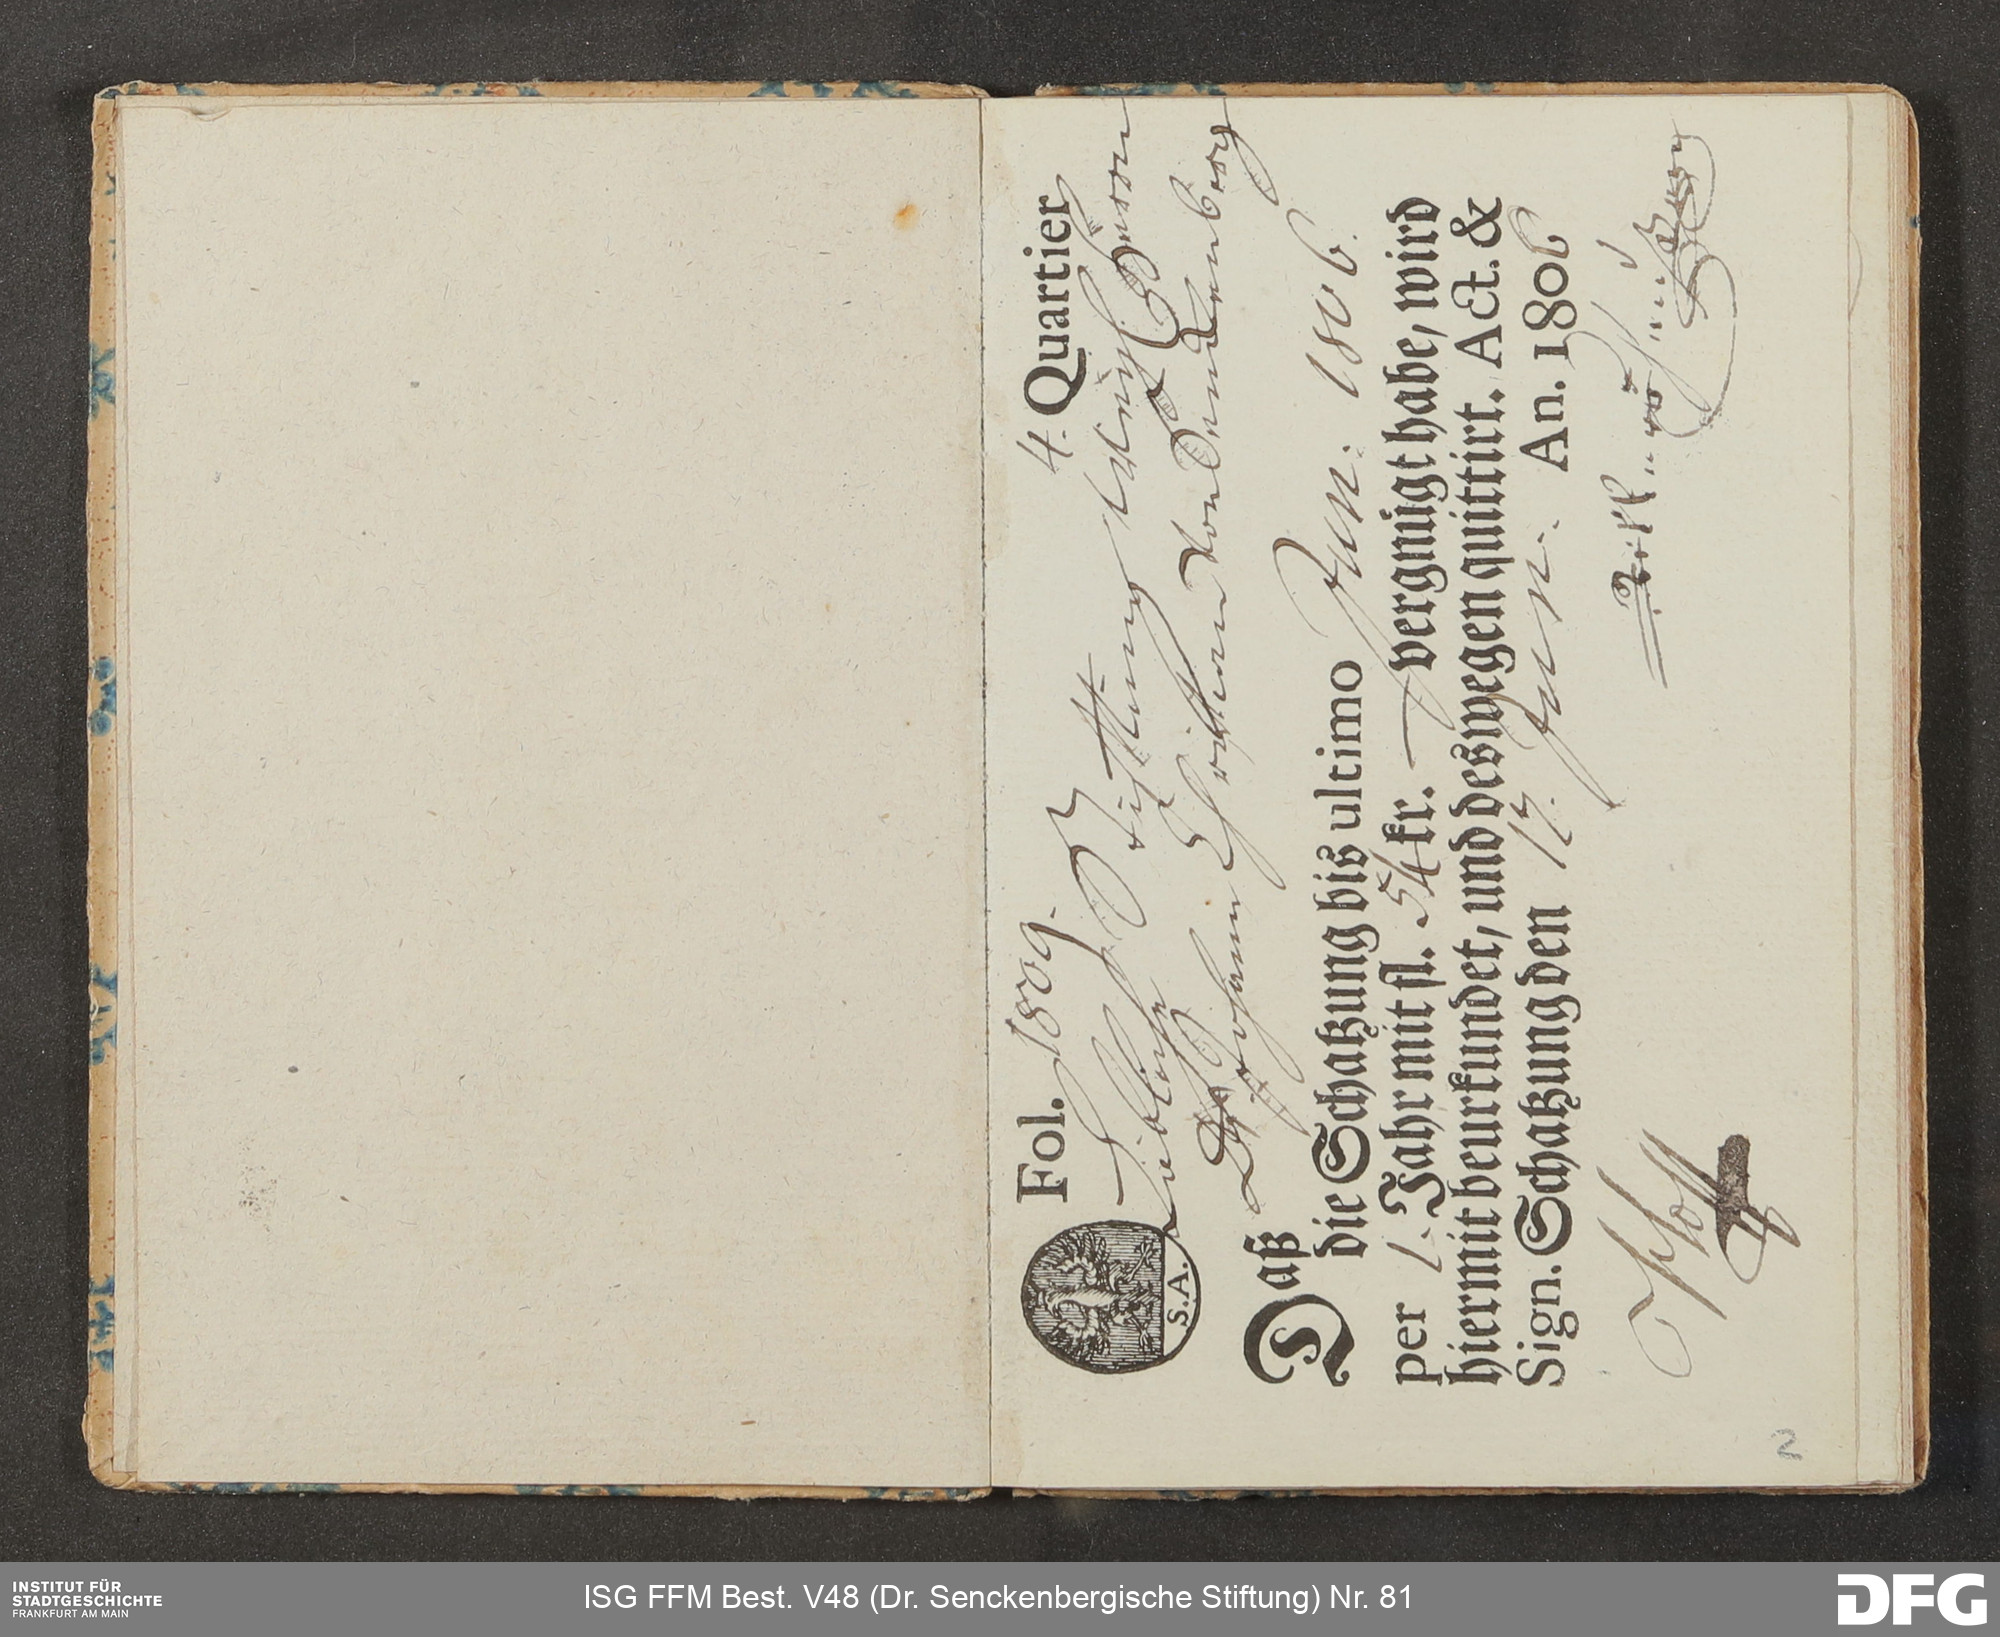 Fol. 1809. 4. Quartier
Löbliche Stiftung Weiland Herrn
Johann Christian von Senckenberg
S.A.
Daß
die Schatzung bis ultimo Jun. 1806.
per 1. Jahr mit fl. 54 kr. — vergnügt habe, wird
hiermit beurkundet, und deswegen quittirt. Act. &
Sign. Schatzung den 17. Jun. An. 1806
2
INSTITUT FÜR
STADTGESCHICHTE
FRANKFURT AM MAIN
ISG FFM Best. V48 (Dr. Senckenbergische Stiftung) Nr. 81
DFG